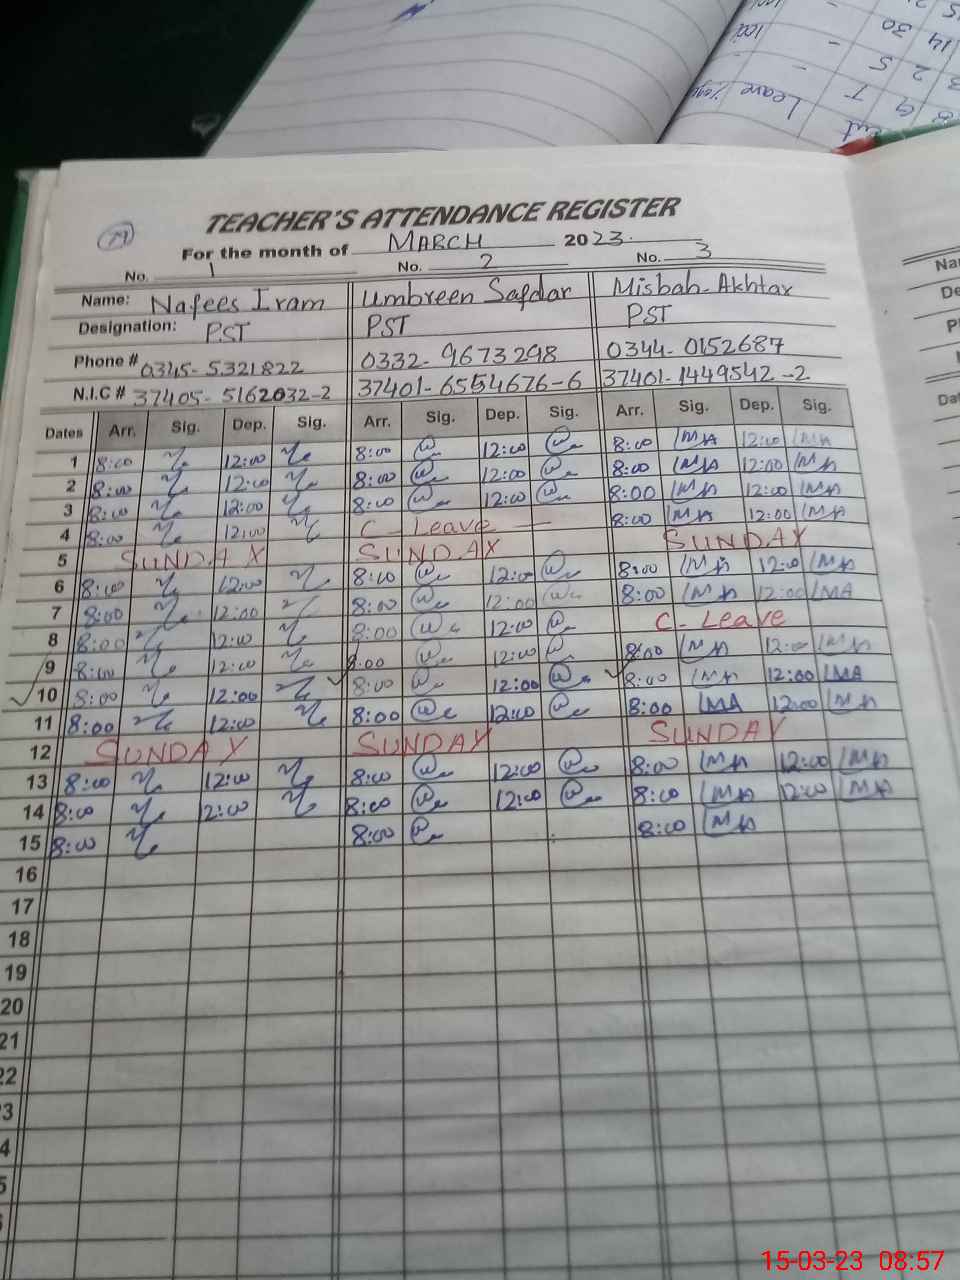 15
14 30
- 5 2
Leave
T 9 8
14
TEACHER'S ATTENDANCE REGISTER
For the month of MARCH 2023.
No. 1 No. 2 No. 3
Name: Nafees Iram Umbreen Safdar Misbah Akhtar
Designation: PST PST PST
Phone # 0345-5321822 0332-9673298 0344-0152687
N.I.C # 37405-5162032-2 37401-6554676-6 37401-1449542-2
Dates Arr. Sig. Dep. Sig. Arr. Sig. Dep. Sig. Arr. Sig. Dep. Sig.
1 8:00 12:00 8:00 12:00 8:00 IMA 12:00 IMA
2 8:00 12:00 8:00 12:00 8:00 IMA 12:00 IMA
3 8:00 12:00 8:00 12:00 8:00 IMA 12:00 IMA
4 8:00 12:00 C-Leave 8:00 IMA 12:00 IMA
5 SUNDAY SUNDAY SUNDAY
6 8:00 12:00 8:00 12:00 8:00 IMA 12:00 IMA
7 8:00 12:00 8:00 12:00 8:00 IMA 12:00 IMA
8 8:00 12:00 8:00 12:00 C-Leave
9 8:00 12:00 8:00 12:00 8:00 IMA 12:00 IMA
10 8:00 12:00 8:00 12:00 8:00 IMA 12:00 IMA
11 8:00 12:00 8:00 12:00 8:00 IMA 12:00 IMA
12 SUNDAY SUNDAY SUNDAY
13 8:00 12:00 8:00 12:00 8:00 IMA 12:00 IMA
14 8:00 12:00 8:00 12:00 8:00 IMA 12:00 IMA
15 8:00 8:00 8:00 IMA
16
17
18
19
20
21
22
3
4
5
Na
De
P
Dat
15-03-23 08:57